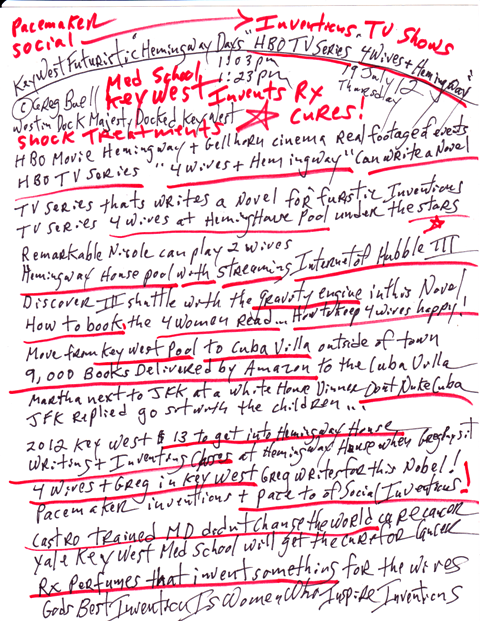 Pacemaker
Social → Inventions, TV Shows
KeyWest Futuristic "Hemingway Days" HBO TV Series 4 Wives + Hemingway"
1:03pm
1:23pm
19 July 12
Thursday
© Greg Buell
Med School
Key West Invents Rx
Cures!
Westin Dock Majesty Docked Key West
Shock Treatments
HBO Movie Hemingway + Gellhorn cinema Real footaged events
HBO TV Series "4 Wives + Hemingway" Can write a Novel
TV series thats writes a Novel for
TV series 4 wives at HemingHouse Pool under the stars
Remarkable Nicole can play 2 wives
Hemingway House pool with streaming Internet of Hubble III
Discover III shuttle with the gravity engine in this Novel
How to book, the 4 women Read... How to keep 4 wives happy!
Move from Key West Pool to Cuba Villa outside of town
9,000 Books Delivered by Amazon to the Cuba Villa
Martha next to JFK at a White House Dinner Dont Nuke Cuba
JFK Replied go with the children...
2012 Key West $13 to get into Hemingway House
Writing + Inventing Closes at Hemingway House when Greg
4 Wives + Greg in Key West Greg writes for this Nobel!
Pacemaker inventions + pace to of Social Inventions!
Castro Trained MD didn't change the world cure cancer
Yale Key West Med School will get the cure for Cancer
Rx Perfumes that invent something for the wives
Gods Best Invention Is Women Who Inspire Inventions